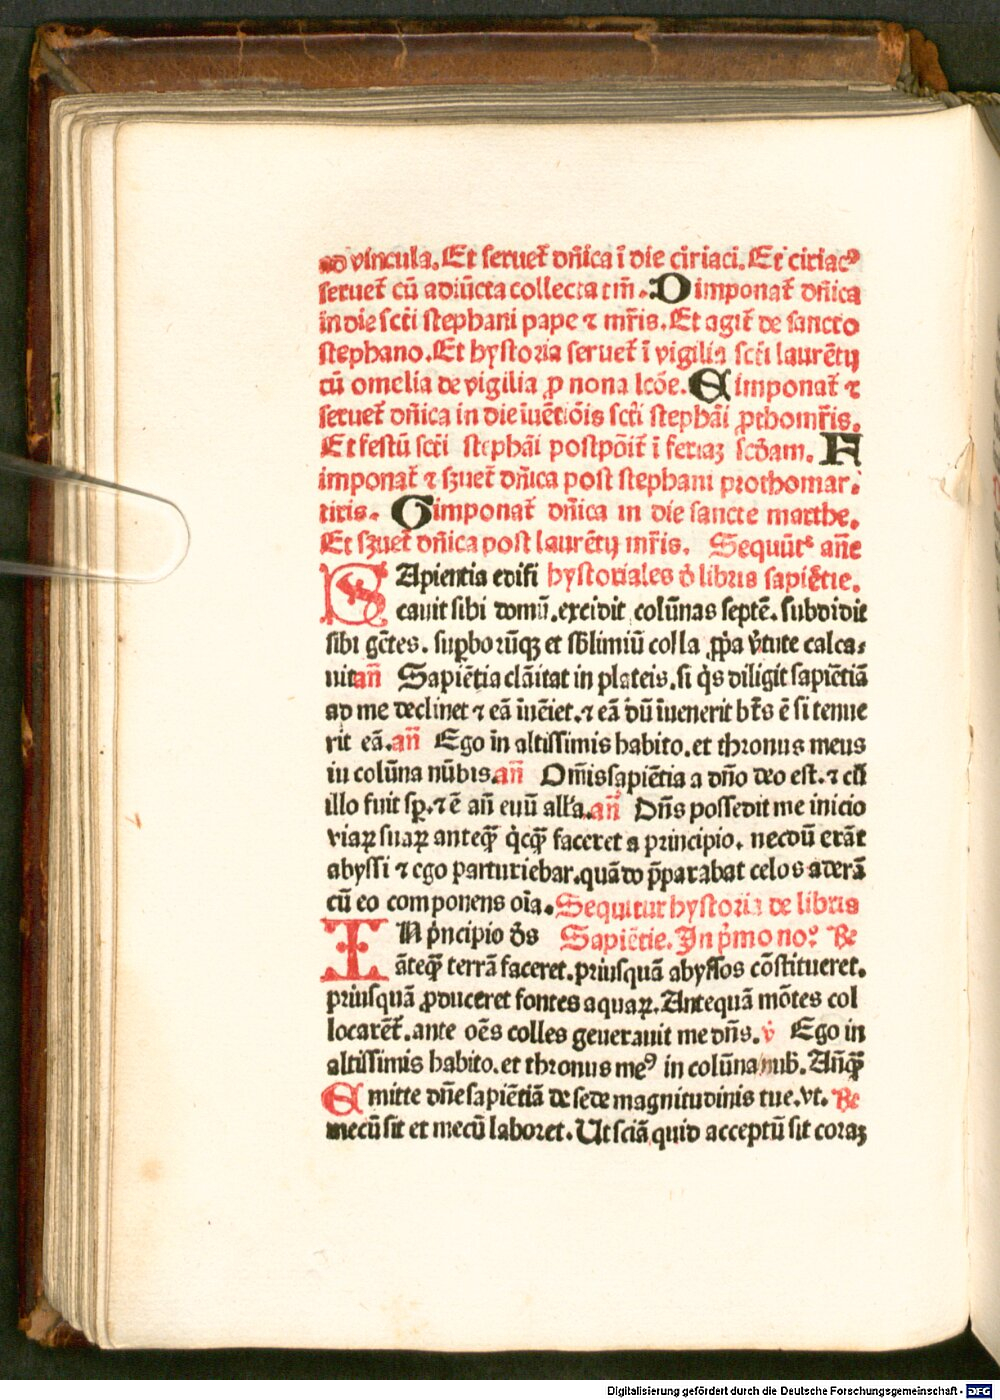 ad vincula. Et seruet᷑ dñica ī die ciriaci. Et ciriacꝰ
seruet᷑ cū adiūcta collecta tm̄. D imponat᷑ dñica
in die scti stephani pape ⁊ mr̄is. Et agit᷑ de sancto
stephano. Et hystoria seruet᷑ ī vigilia scti laurētij
cū omelia de vigilia ꝓ nona lcōe. E imponat᷑ ⁊
seruet᷑ dñica in die īuētiōis scti stephāi ꝓthomr̄is.
Et festū scti stephāi postpōit᷑ ī feriaꝫ scḋam. F
imponat᷑ ⁊ sꝫuet᷑ dñica post stephani prothomar⸗
tiris. G imponat᷑ dñica in die sancte marthe.
Et sꝫuet᷑ dñica post laurētij mr̄is. Sequūt᷑ añe
SApientia edifi hystoriales ḋ libris sapiētie.
cauit sibi domū. excidit colūnas septē. subdidit
sibi gētes. suꝑborūqꝫ et sblimiū colla ꝓpa v̇tute calca⸗
uit añ Sapiētia clāitat in plateis. si q̇s diligit sapiētiā
ad me declinet ⁊ eā īuēiet. ⁊ eā dū īuenerit bt̄s ē si tenue
rit eā. añ Ego in altissimis habito. et thronus meus
in colūna nūbis. añ Om̄is sapiētia a dño deo est. ⁊ cū
illo fuit sꝑ. ⁊ ē añ euū all'a. añ Dñs possedit me inicio
viaꝝ suaꝝ anteqꝫ̄ q̇cqꝫ̄ faceret a principio. necdū erāt
abyssi ⁊ ego parturiebar. quādo p̄parabat celos aderā
cū eo componens oīa. Sequitur hystoria de libris
IN pṅcipio ds Sapiētie. In pṁo noc̄ ℞
āteqꝫ̄ terrā faceret. priusquā abyssos cōstitueret.
priusquā ꝓduceret fontes aquaꝝ. Antequā mōtes col
locarēt᷑. ante oēs colles generauit me dñs. v̇ Ego in
altissimis habito. et thronus meꝰ in colūna nub. Añqꝫ̄
Emitte dñe sapiētiā de sede magnitudinis tue. vt. ℞
mecū sit et mecū laboret. Ut sciā quid acceptū sit coraꝫ
Digitalisierung gefördert durch die Deutsche Forschungsgemeinschaft - DFG